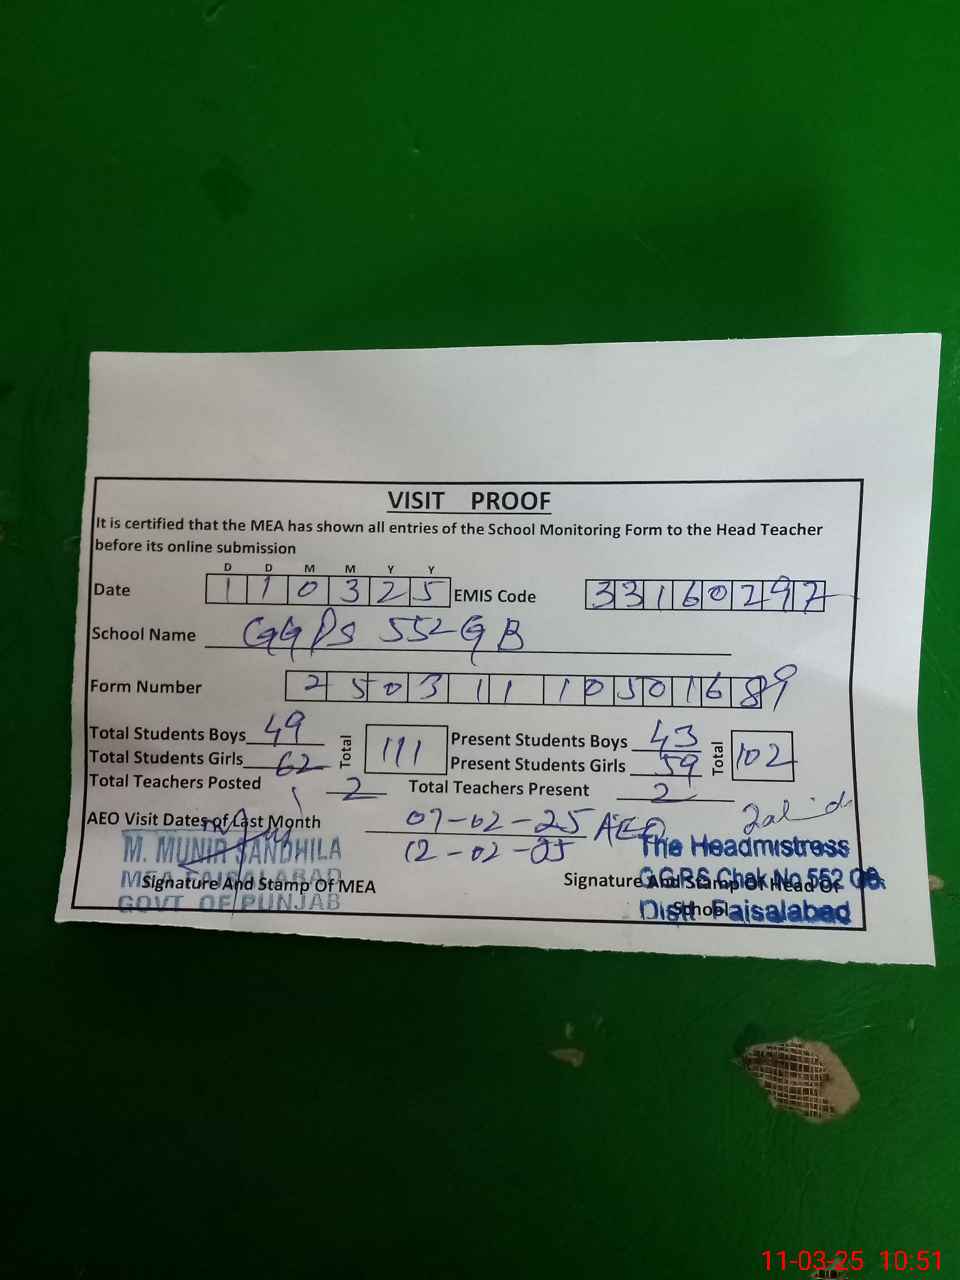 VISIT PROOF
It is certified that the MEA has shown all entries of the School Monitoring Form to the Head Teacher
before its online submission
D D M M Y Y
Date 110325 EMIS Code 33160297
School Name GGPS 552 GB
Form Number 25031110501689
Total Students Boys 49 Total 111 Present Students Boys 43 Total 102
Total Students Girls 62 Present Students Girls 59
Total Teachers Posted 2 Total Teachers Present 2
AEO Visit Dates of Last Month 07-02-25 AEO
12-02-25
M. MUNIR SANDHILA
MEA FAISALABAD
GOVT OF PUNJAB
Signature And Stamp Of MEA
The Headmistress
G.G.P.S Chak No 552 GB.
Distt Faisalabad
Signature And Stamp Of Head Of
School
11-03-25 10:51